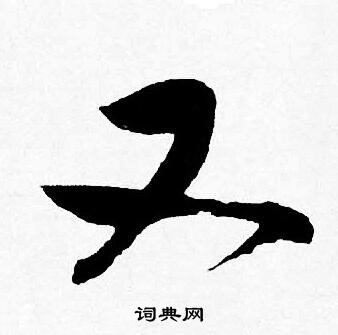 又
词典网